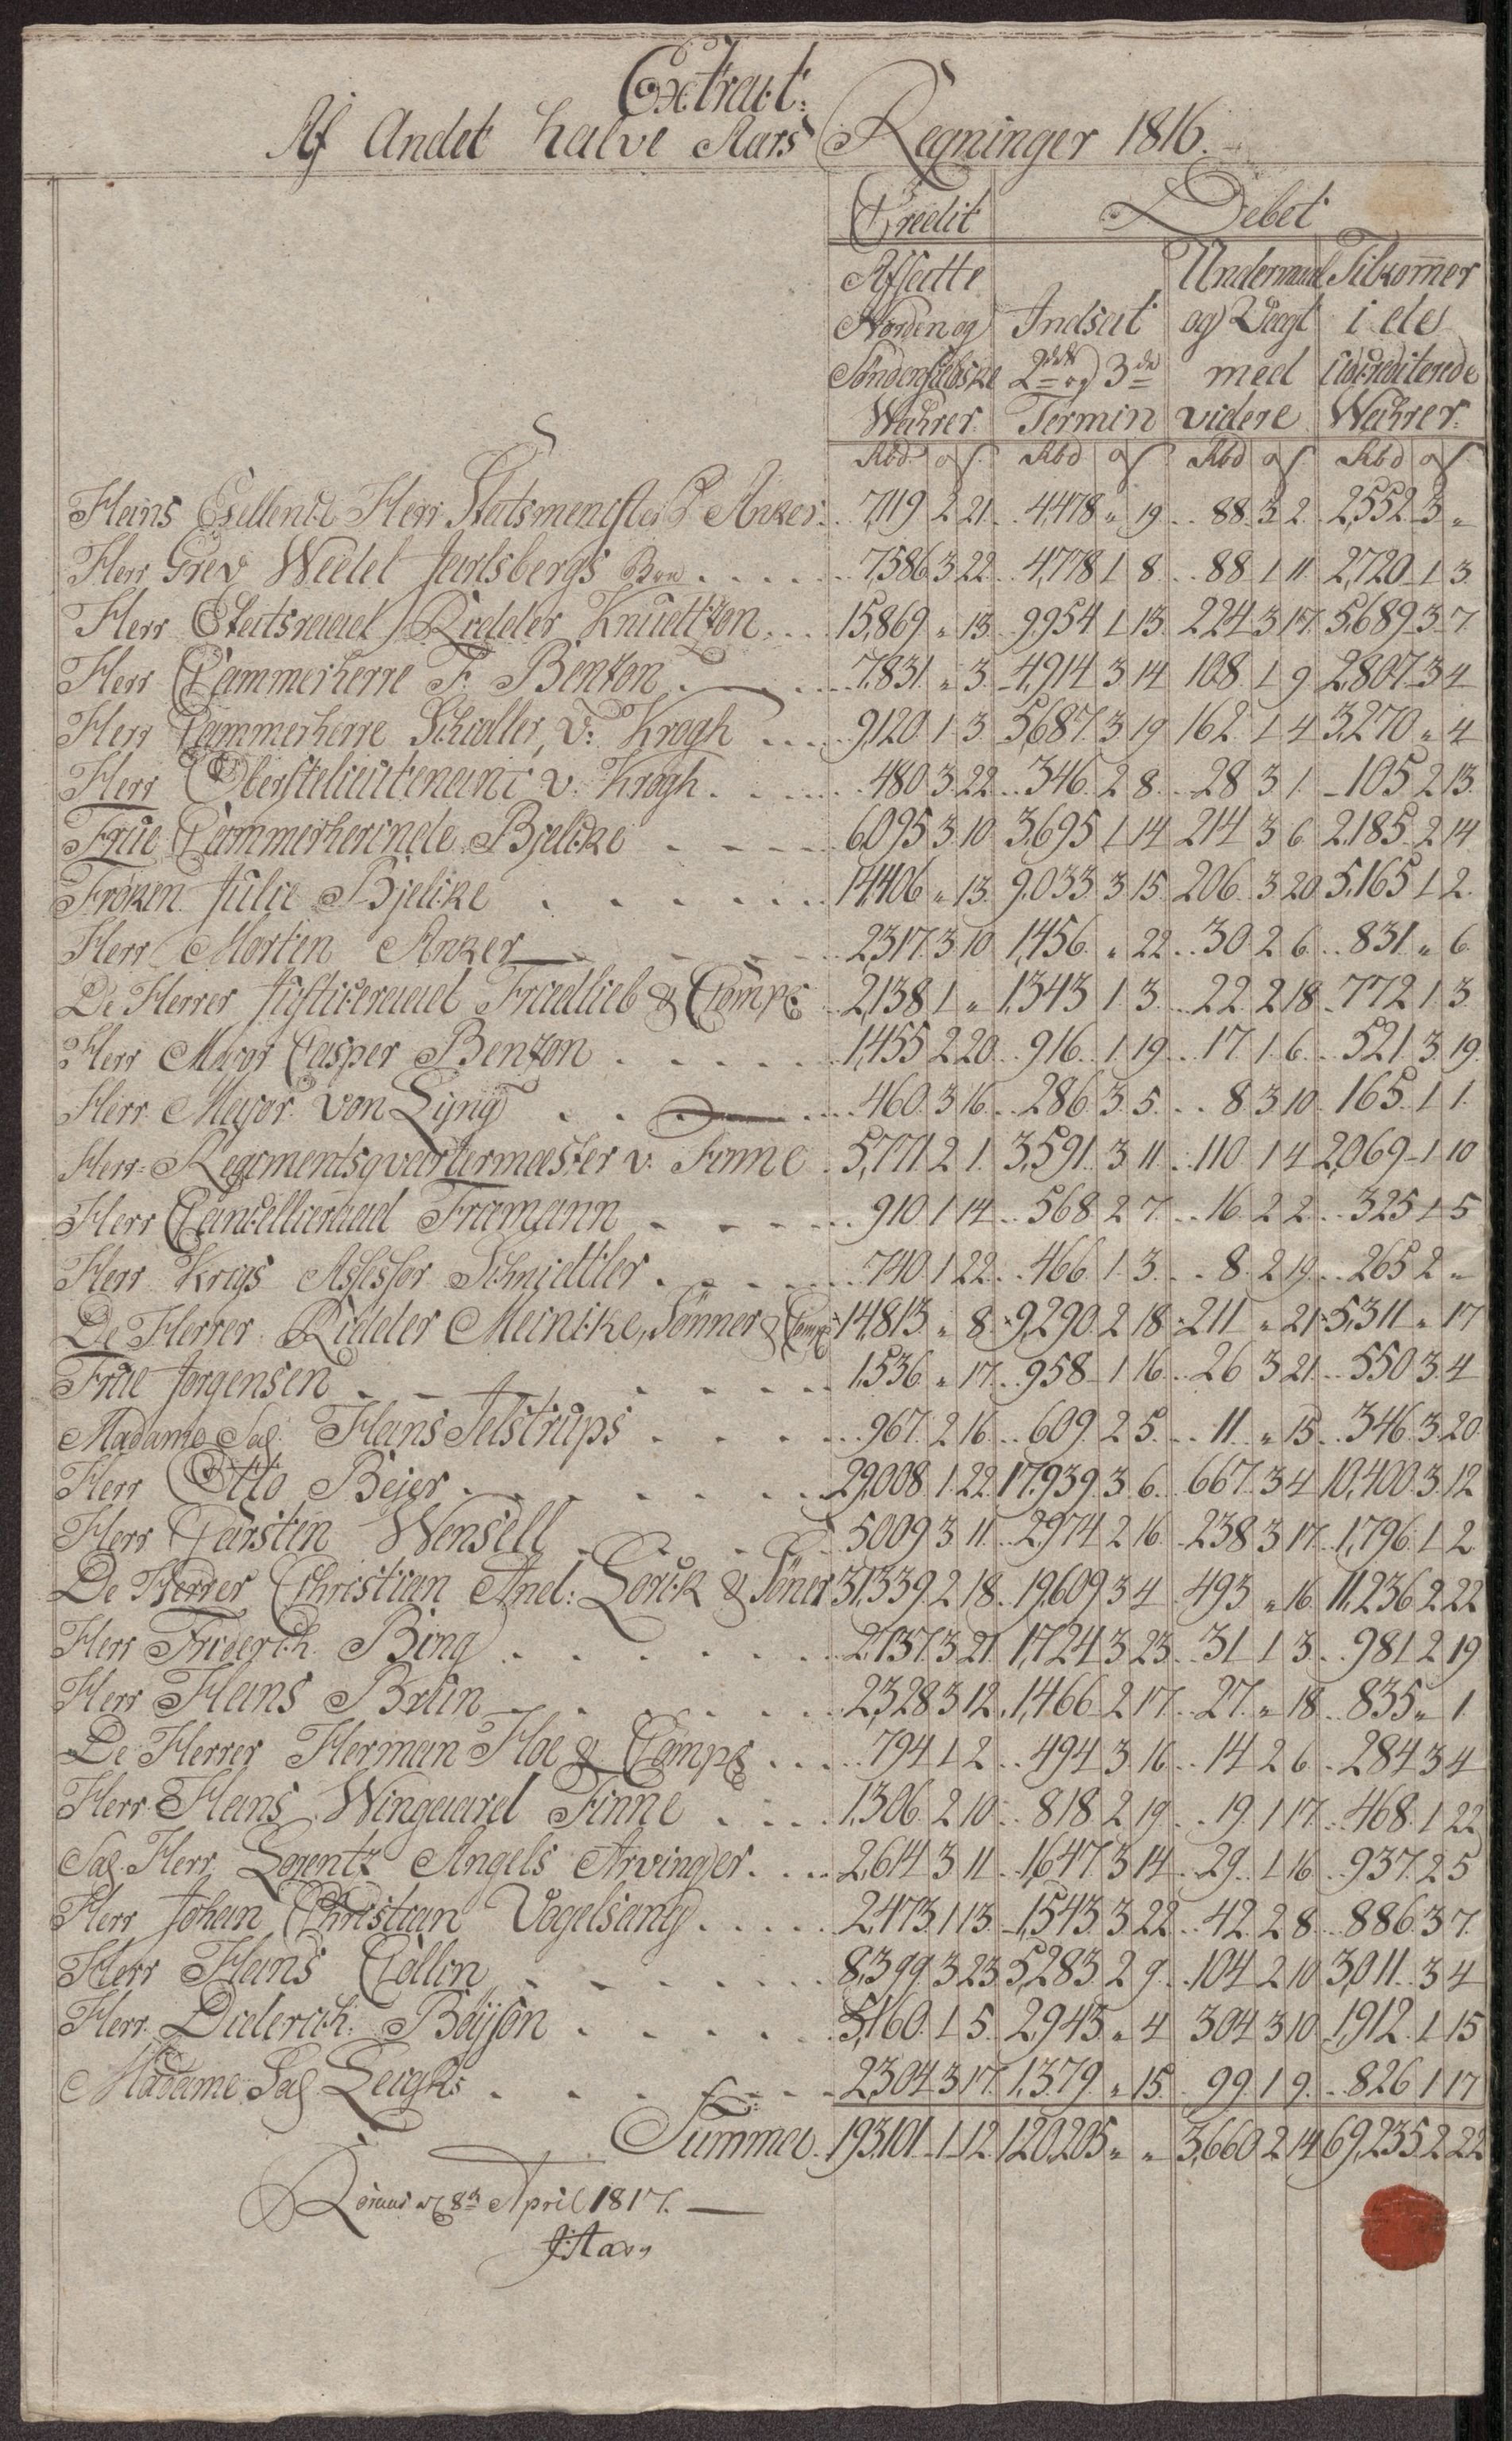 Extract:
Af Andet halve Aars Regninger 1816.
Credit Debet
Afsatte Undermaal Tilkommer
Norden og Indsat og Vægt i de
Søndenfieldske 2den og 3die med udcrediterede
Wahrer. Termin videre Wahrer.
Rbd. o s. Rbd o s. Rbd o s. Rbd o s.
Hans Exellence Herr Statsmenister P Anker. 7,119 2 21. 4,478 " 19. 88. 3 2. 2,552 3 "
Herr Grev Wedel Jarlsbergs Boe . . . . . 7,586 3 22. 4,778 1 8. 88 1 11. 2,720 1 3
Herr Statsraad Ridder Knudtzon. . . . 15,869 " 13. 9,954 1 13. 224 3 17. 5,689 3 7.
Herr Cammerherre F. Bentzon . . . . 7,831. " 3. 4,914 3 14 108. 1 9 2,807 3 4
Herr Cammerherre Schøller, v: Krogh . . . 9,120. 1 3. 5,687. 3 19 162. 1 4 3,270 " 4
Herr Oberstelieutenant v. Krogh. . . . . 480 3. 22. 346. 2 8. 28 3 1. 105 2 13.
Frue Cammerherinde Bjelcke . . . . 6,095 3 10 3,695 1 14 214 3 6 2,185. 2 14
Frøken Julie Bjelcke . . . . . . 14,406 " 13. 9,033 3 15. 206. 3 20 5,165 1 2.
Herr Morten Anker . . . . 2,317. 3 10 1,456. " 22. 30. 2 6. 831. " 6.
De Herrer Justitzraad Friedlieb & Comp: 2,138 1 " 1,343 1 3. 22 2 18. 772 1 3.
Herr Major Casper Bentzon . . . . . 1,455 2 20. 916. 1 19. 17. 1 6. 521. 3 19.
Herr Major von Lyng . . . . 460. 3 16. 286. 3 5. 8 3 10. 165. 1 1.
Herr Regimentsqvartermæster v. Finne . 5,771 2 1. 3,591. 3 11. 110 1 4 2,069 1 10
Herr Cancellieraad Framann . . . . 910 1 14. 568. 2 7. 16. 2 2. 325 1 5
Herr Krigs Assessor Schmettler . . . . 740. 1 22. 466. 1 3. 8. 2 19. 265 2 "
De Herrer Ridder Meincke, Sønner & Comp: 14,813. " 8. 9,290. 2 18 211 " 21 5,311 " 17
Frue Jørgensen . . . . . . 1,536. " 17. 958 1 16. 26 3 21. 550 3 4
Madame Sal. Hans Jelstrups . . . . 967. 2 16. 609. 2 5. 11. " 15. 346. 3 20.
Herr Otto Bejer . . . . . . 29,008. 1 22. 17,939. 3 6. 667. 3 4 10,400. 3. 12
Herr Carsten Wensell . . . . 5,009 3 11. 2,974 2 16. 238 3 17. 1,796. 1 2
De Herrer Christian And: Lorck & Söner 31,339. 2 18. 19,609 3 4 493 " 16. 11,236 2 22
Herr Friderich Bing . . . . . . 2,737. 3 21. 1,724 3 23. 31 1 3. 981 2 19
Herr Hans Brun . . . . . . 2,328 3 12. 1,466 2 17. 27. " 18. 835 " 1.
De Herrer Herman Hoe & Comp: . . . 794 1 2. 494 3 16. 14 2 6. 284 3 4
Herr Hans Wingaard Finne . . . . 1,306. 2 10. 818 2 19. 19. 1 17. 468. 1 22
Sal. Herr Lorentz Angels Arvinger . . . 2,614 3 11. 1,647. 3 14. 29. 1 16. 937. 2 5
Herr Johan Christian Vogelsang . . . . . 2,473. 1 13. 1,543. 3 22. 42. 2 8. 886 3 7.
Herr Hans Collin . . . . . . 8,399. 3 23 5,283 2 9. 104 2 10 3,011. 3 4
Herr Diderich Böyson . . . . . . 5,160. 1 5. 2,943. " 4 304 3 10. 1,912. 1 15
Madame Sal. Lerghs . . . . . . 2,304 3 17. 1,379. " 15. 99 1 9. 826 1 17
Summa 193,101 1 12. 120,205 " " 3,660 2 14 69,235 2 22
Røraas d 8de April 1817.